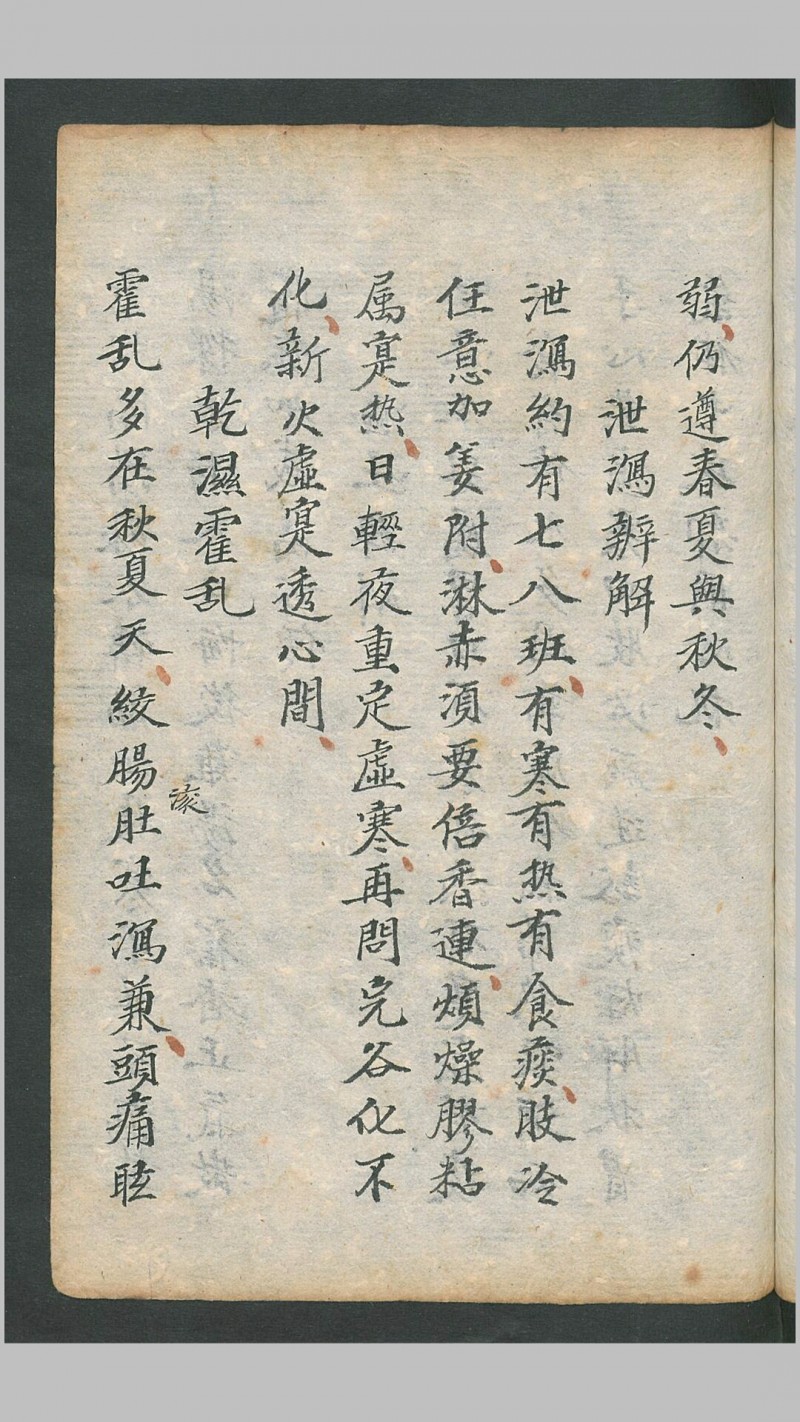 弱、仍遵春夏與秋冬、
泄瀉辨解
泄瀉約有七八班、有寒有热有食痰、肢冷
任意加姜附、淋赤須要倍香連、煩燥膠粘
属寔热、日輕夜重定虛寒、再問完谷化不
化、新火虛寔透心間、
乾濕霍乱
霍乱多在秋夏天、絞腸肚吐瀉兼、頭痛眩
痧